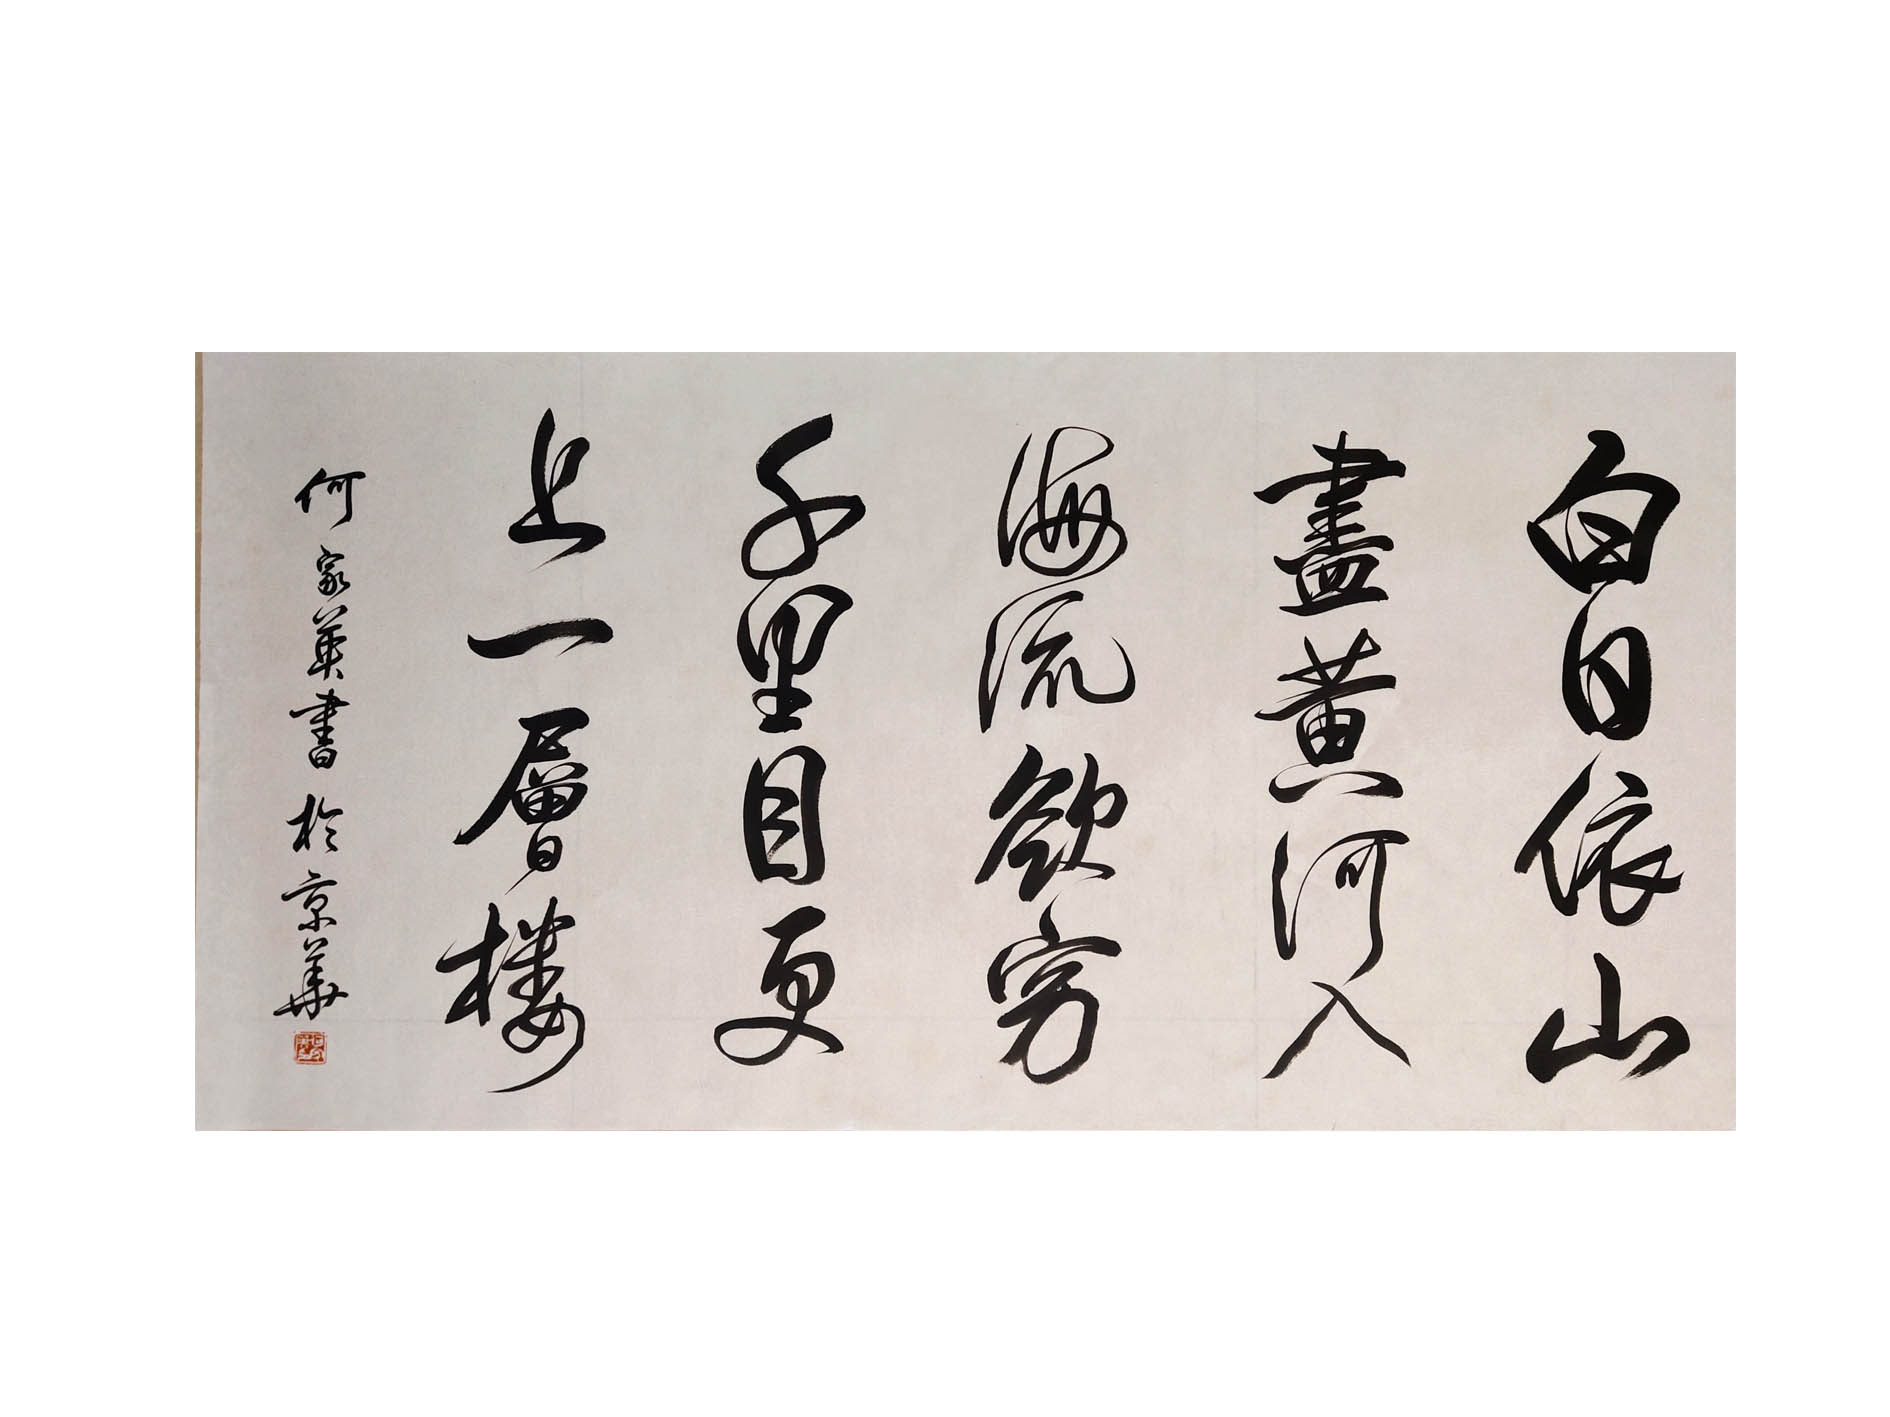 白日依山
盡黄河入
海流欲窮
千里目更
上一層樓
何家英書於京華